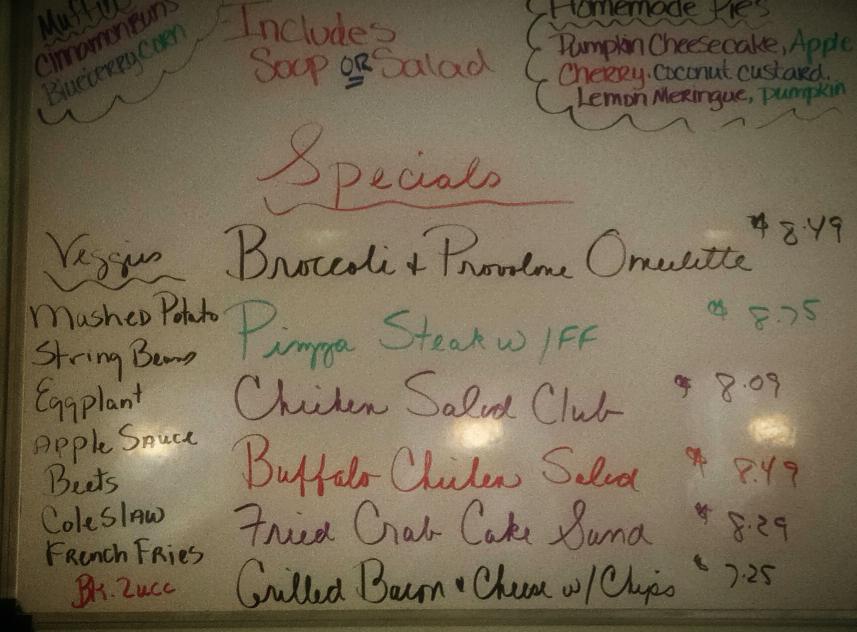 Muffin
Cinnamon Buns
Blueberry Corn
Includes
Soup OR Salad
Homemade Pies
Pumpkin Cheesecake, Apple
Cherry. Coconut custard.
Lemon Meringue, Pumpkin
Specials
Veggies
Mashed Potato
String Beans
Eggplant
Apple Sauce
Beets
Coleslaw
French Fries
Bk. Zucc
Broccoli + Provolone Omelette $8.49
Pizza Steak w/FF $8.75
Chicken Salad Club $8.09
Buffalo Chicken Salad $8.49
Fried Crab Cake Sand $8.29
Grilled Bacon & Cheese w/Chips $7.25